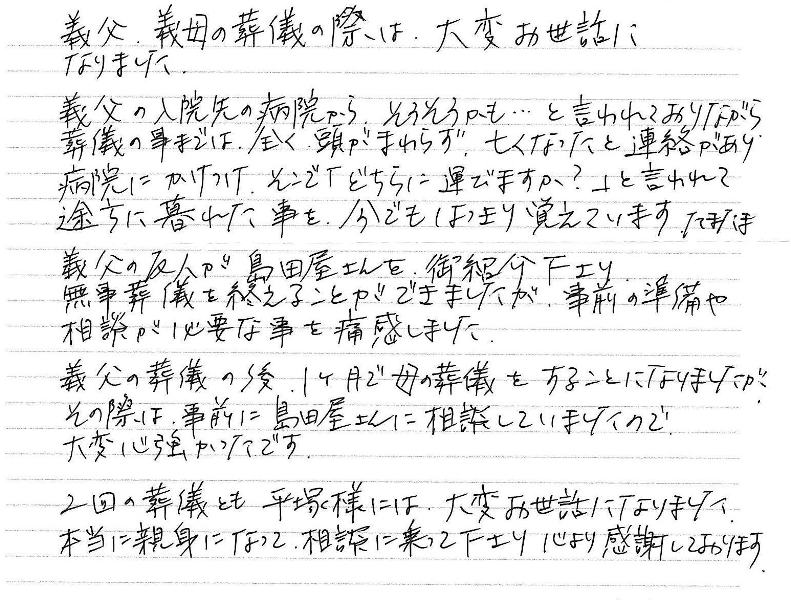 義父、義母の葬儀の際は、大変お世話に
なりました。
義父の入院先の病院から、そろそろかも…と言われておりながら
葬儀の事までは、全く頭がまわらず、亡くなったと連絡があり
病院にかけつけ、そこで「どちらに運びますか?」と言われて
途方に暮れた事を、今でもはっきり覚えています。たまたま
義父の友人が島田屋さんを、御紹介下さり、
無事葬儀を終えることができましたが、事前の準備や
相談が必要な事を痛感しました。
義父の葬儀の後、1ヶ月で母の葬儀をすることになりましたが、
その際は、事前に島田屋さんに相談していましたので、
大変心強かったです。
2回の葬儀とも平塚様には、大変お世話になりました。
本当に親身になって、相談に乗って下さり心より感謝しております。